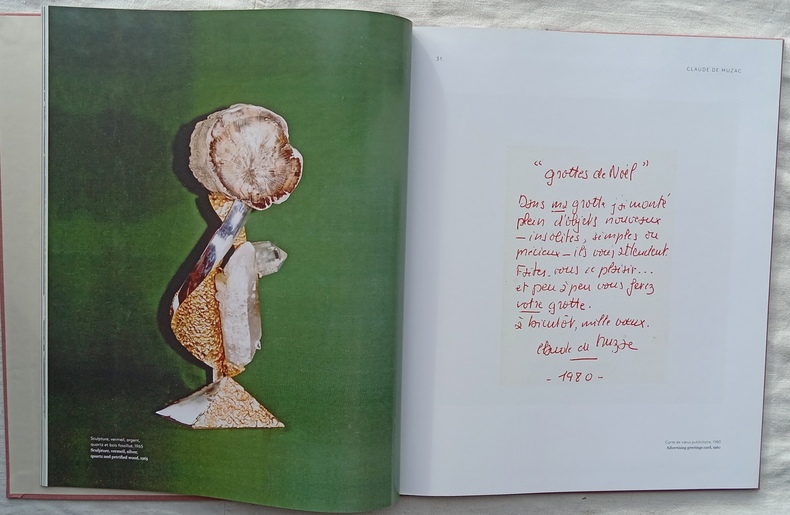 Sculpture, vermeil, argent,
quartz et bois fossilisé, 1965
Sculpture, vermeil, silver,
quartz and petrified wood, 1965
CLAUDE DE MUZAC
"grottes de Noël"
Dans ma grotte j'ai monté
plein d'objets nouveaux
– insolites, simples ou
précieux – ils vous attendent.
Faites-vous ce plaisir...
et peu à peu vous ferez
votre grotte.
à bientôt, mille vœux.
Claude de Muzac
- 1980 -
Carte de vœux publicitaire, 1980
Advertising greetings card, 1980